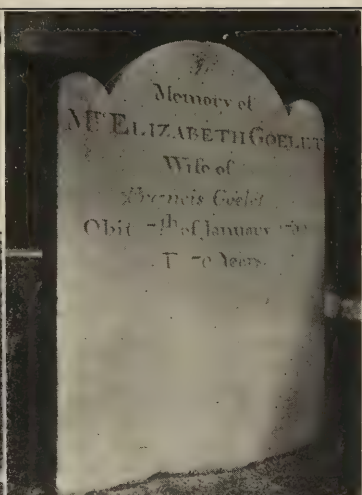 In
Memory of
Mrs ELIZABETH GOELET
Wife of
Francis Goelet
Obit 7th of January
Years